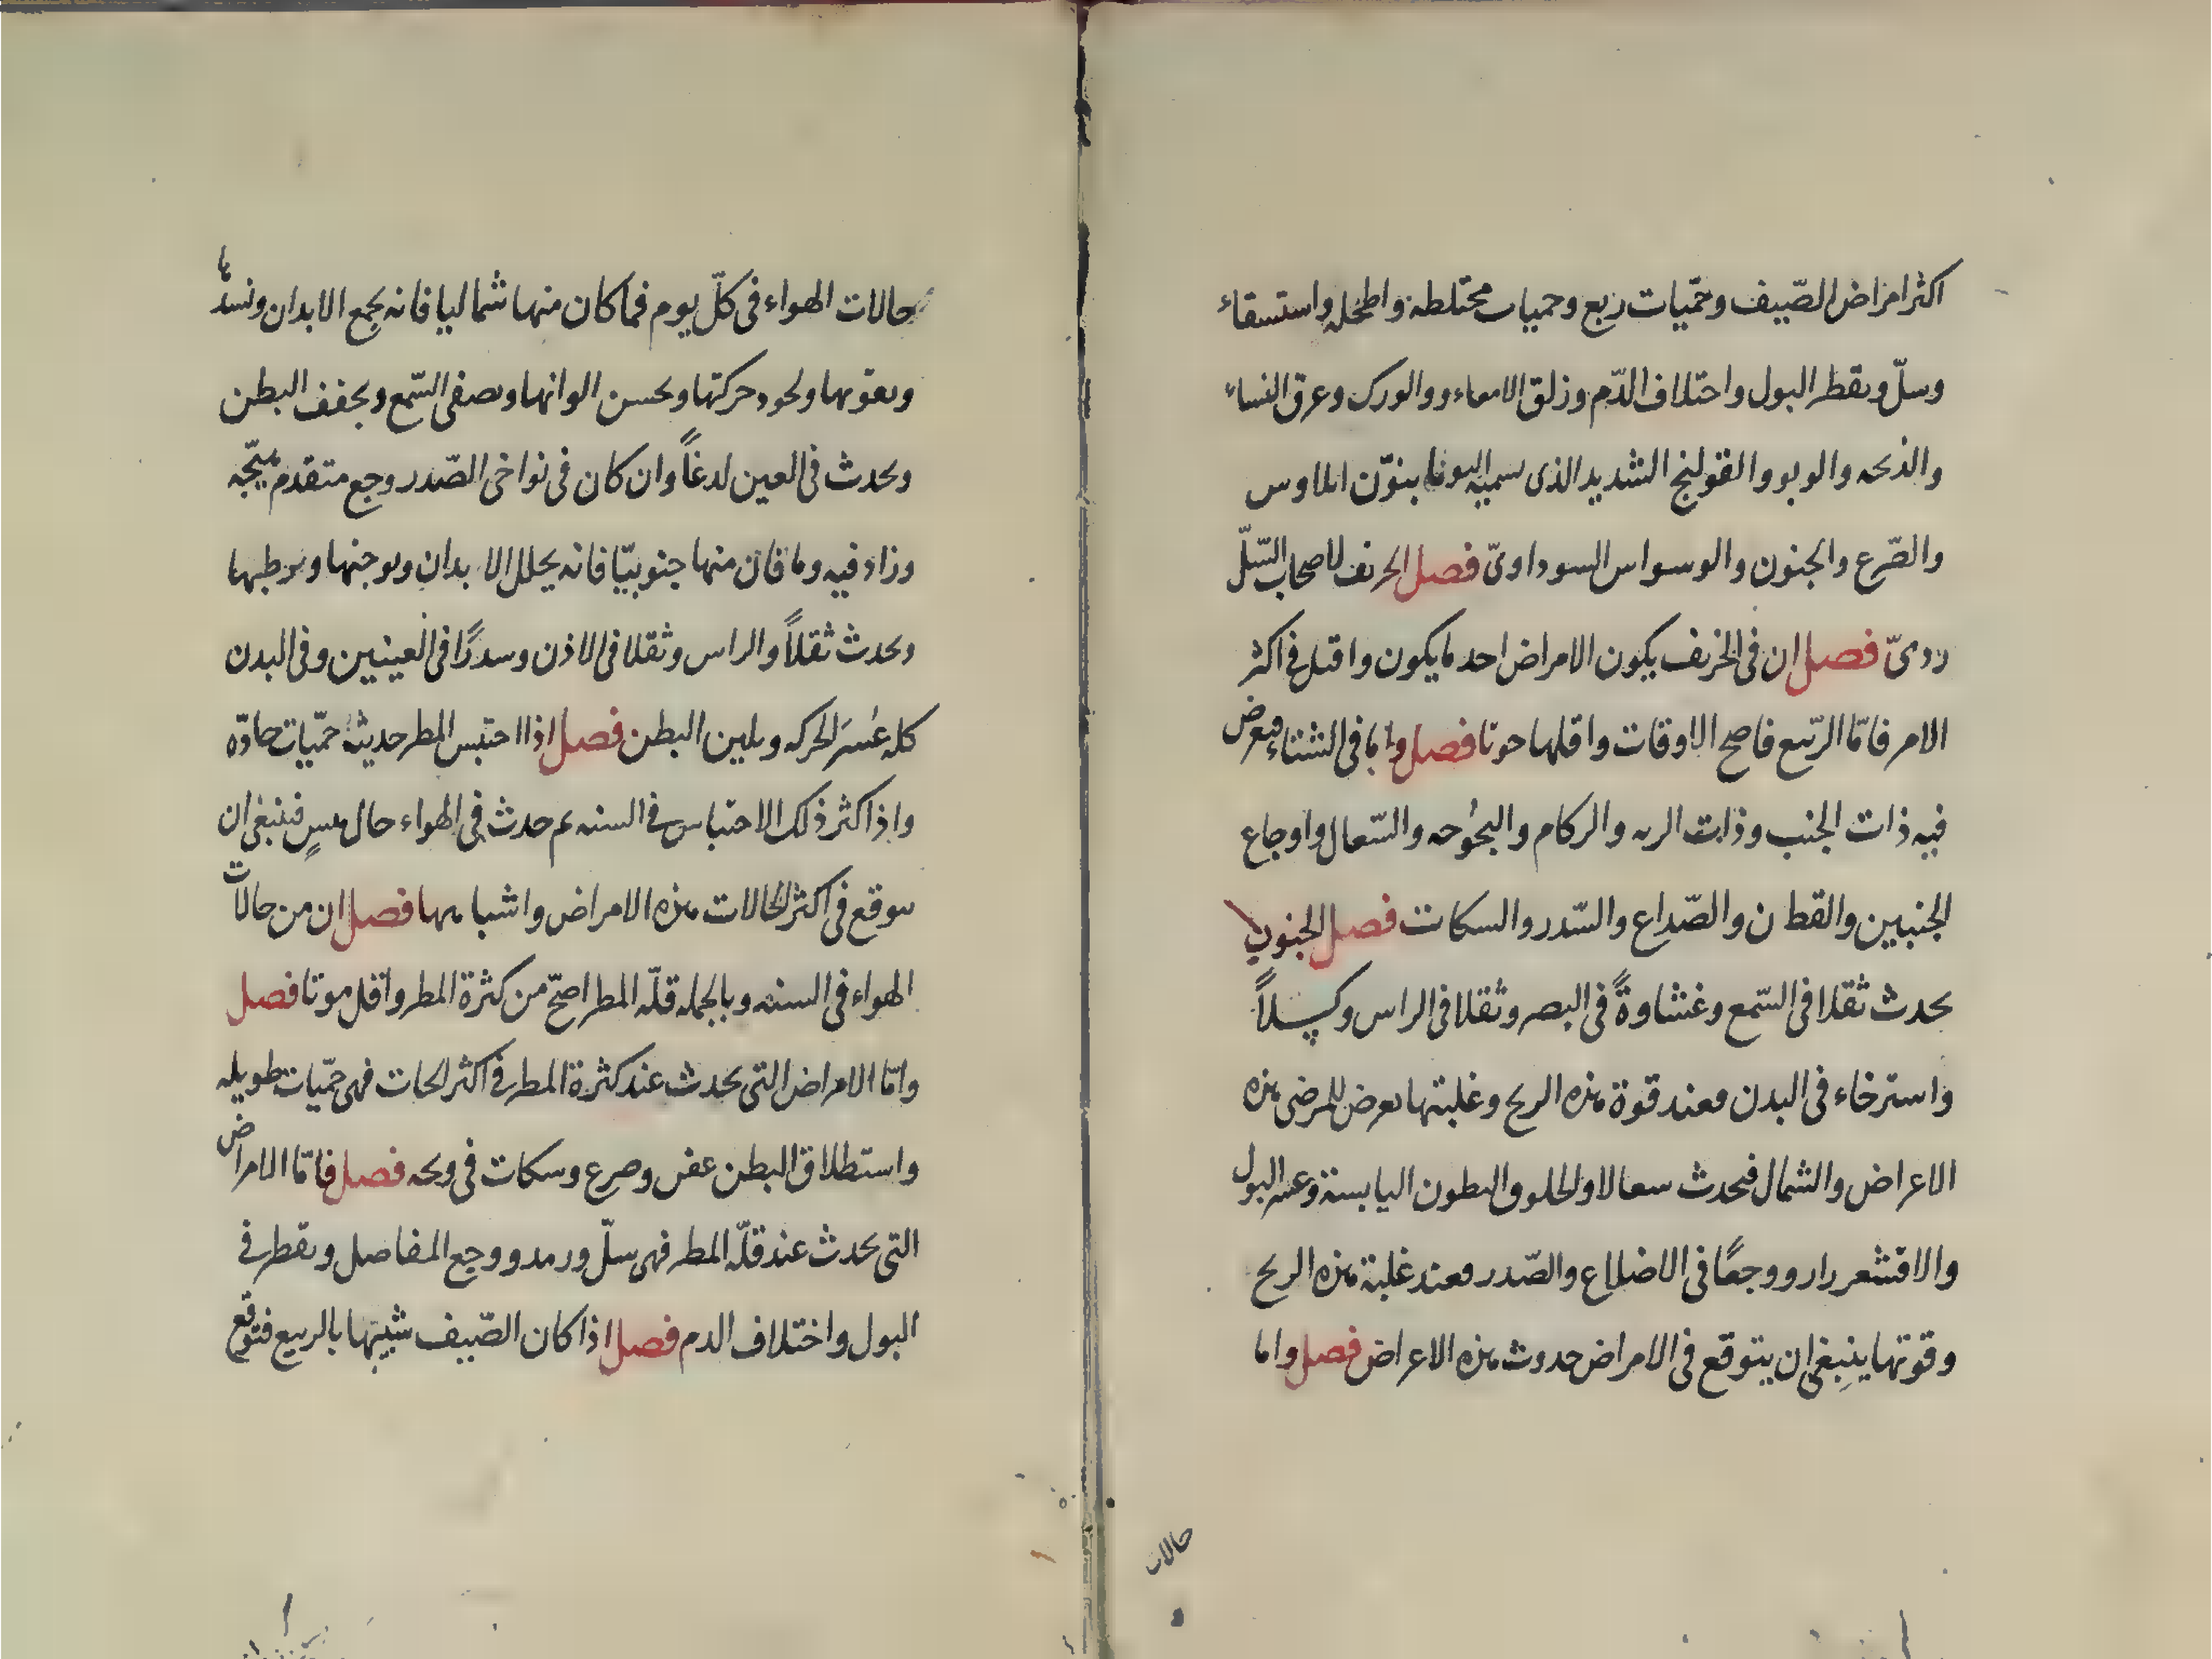 اكثر امراض الصّيف وحمّيات ربع وحميات مختلطه واطحله واستسقاء
وسلّ وىقطر البول واختلاف الدّم وزلق الامعاء ووالورك وعرق النساء
والذبحه والوبو والقولنج الشديد الذى سميه اليونا بنوّن ايلاوس
والصّرع والجنون والوسواس السوداوىّ فصل الخريف لاصحاب السّلّ
ردىّ فصل ان فى الخريف يكون الامراض احد ما يكون واقتل فى اكثر
الامر فامّا الرّبيع فاصح الاوقات واقلها موتا فصل واما فى الشتاء فيعرض
فيه ذات الجنب وذات الريه والركام والبحُوحه والسّعال واوجاع
الجنبين والقطن والصّداع والسّدر والسكات فصل الجنوب
يحدث ثقلا فى السّمع وغشاوةً فى البصر وثقلا فى الراس وكسلاً
واسترخاء فى البدن فعند قوة هذه الريح وغلبتها يعرض للمرضى هذه
الاعراض والشمال فيحدث سعالا والحلوق البطون اليابسة وعسر البول
والاقشعرار ووجعًا فى الاضلاع والصّدر فعند غلبة هذه الريح
وقوتها ينبغى ان يتوقع فى الامراض حدوث هذه الاعراض فصل واما
حالات
حالات الهواء فى كلّ يوم فما كان منها شماليا فانه يجمع الابدان ونسدها
ويقويها ويجود حركتها ويحسن الوانها ويصفى السّمع ويجفف البطن
ويحدث فى العين لدغاً وان كان فى نواحى الصّدر وجع متقدم هيّجه
وزاد فيه وما قان منها جنوبيّا فانه يحلل الابدان ويوجنها ويرطبها
ويحدث ثقلاً والراس وثقلا فى الاذن وسدرًا فى العينين وفى البدن
كله عُسرَ الحركه ويلين البطن فصل اذا احتبس المطر حديثة حمّيات حادّه
واذا كثر ذلك الاحتباس فى السنه ىم حدث فى الهواء حال يبسٍ فينبغى ان
يتوقع فى اكثر الحالات هذه الامراض واشباهها فصل ان من حالات
الهواء فى السنه وبالجمله قلّه المطر اصحّ من كثرة المطر واقل موتا فصل
وامّا الامراض التى يحدث عند كثرة المطر فى اكثر الحات فهى حمّيات طويله
واستطلاق البطن عفن وصرع وسكات فى وبحه فصل فامّا الامراض
التى يحدث عند قلّه المطر فهى سلّ ورمد ووجع المفاصل وىقطر فى
البول واختلاف الدم فصل اذا كان الصّيف شبيها بالربيع فتوقع